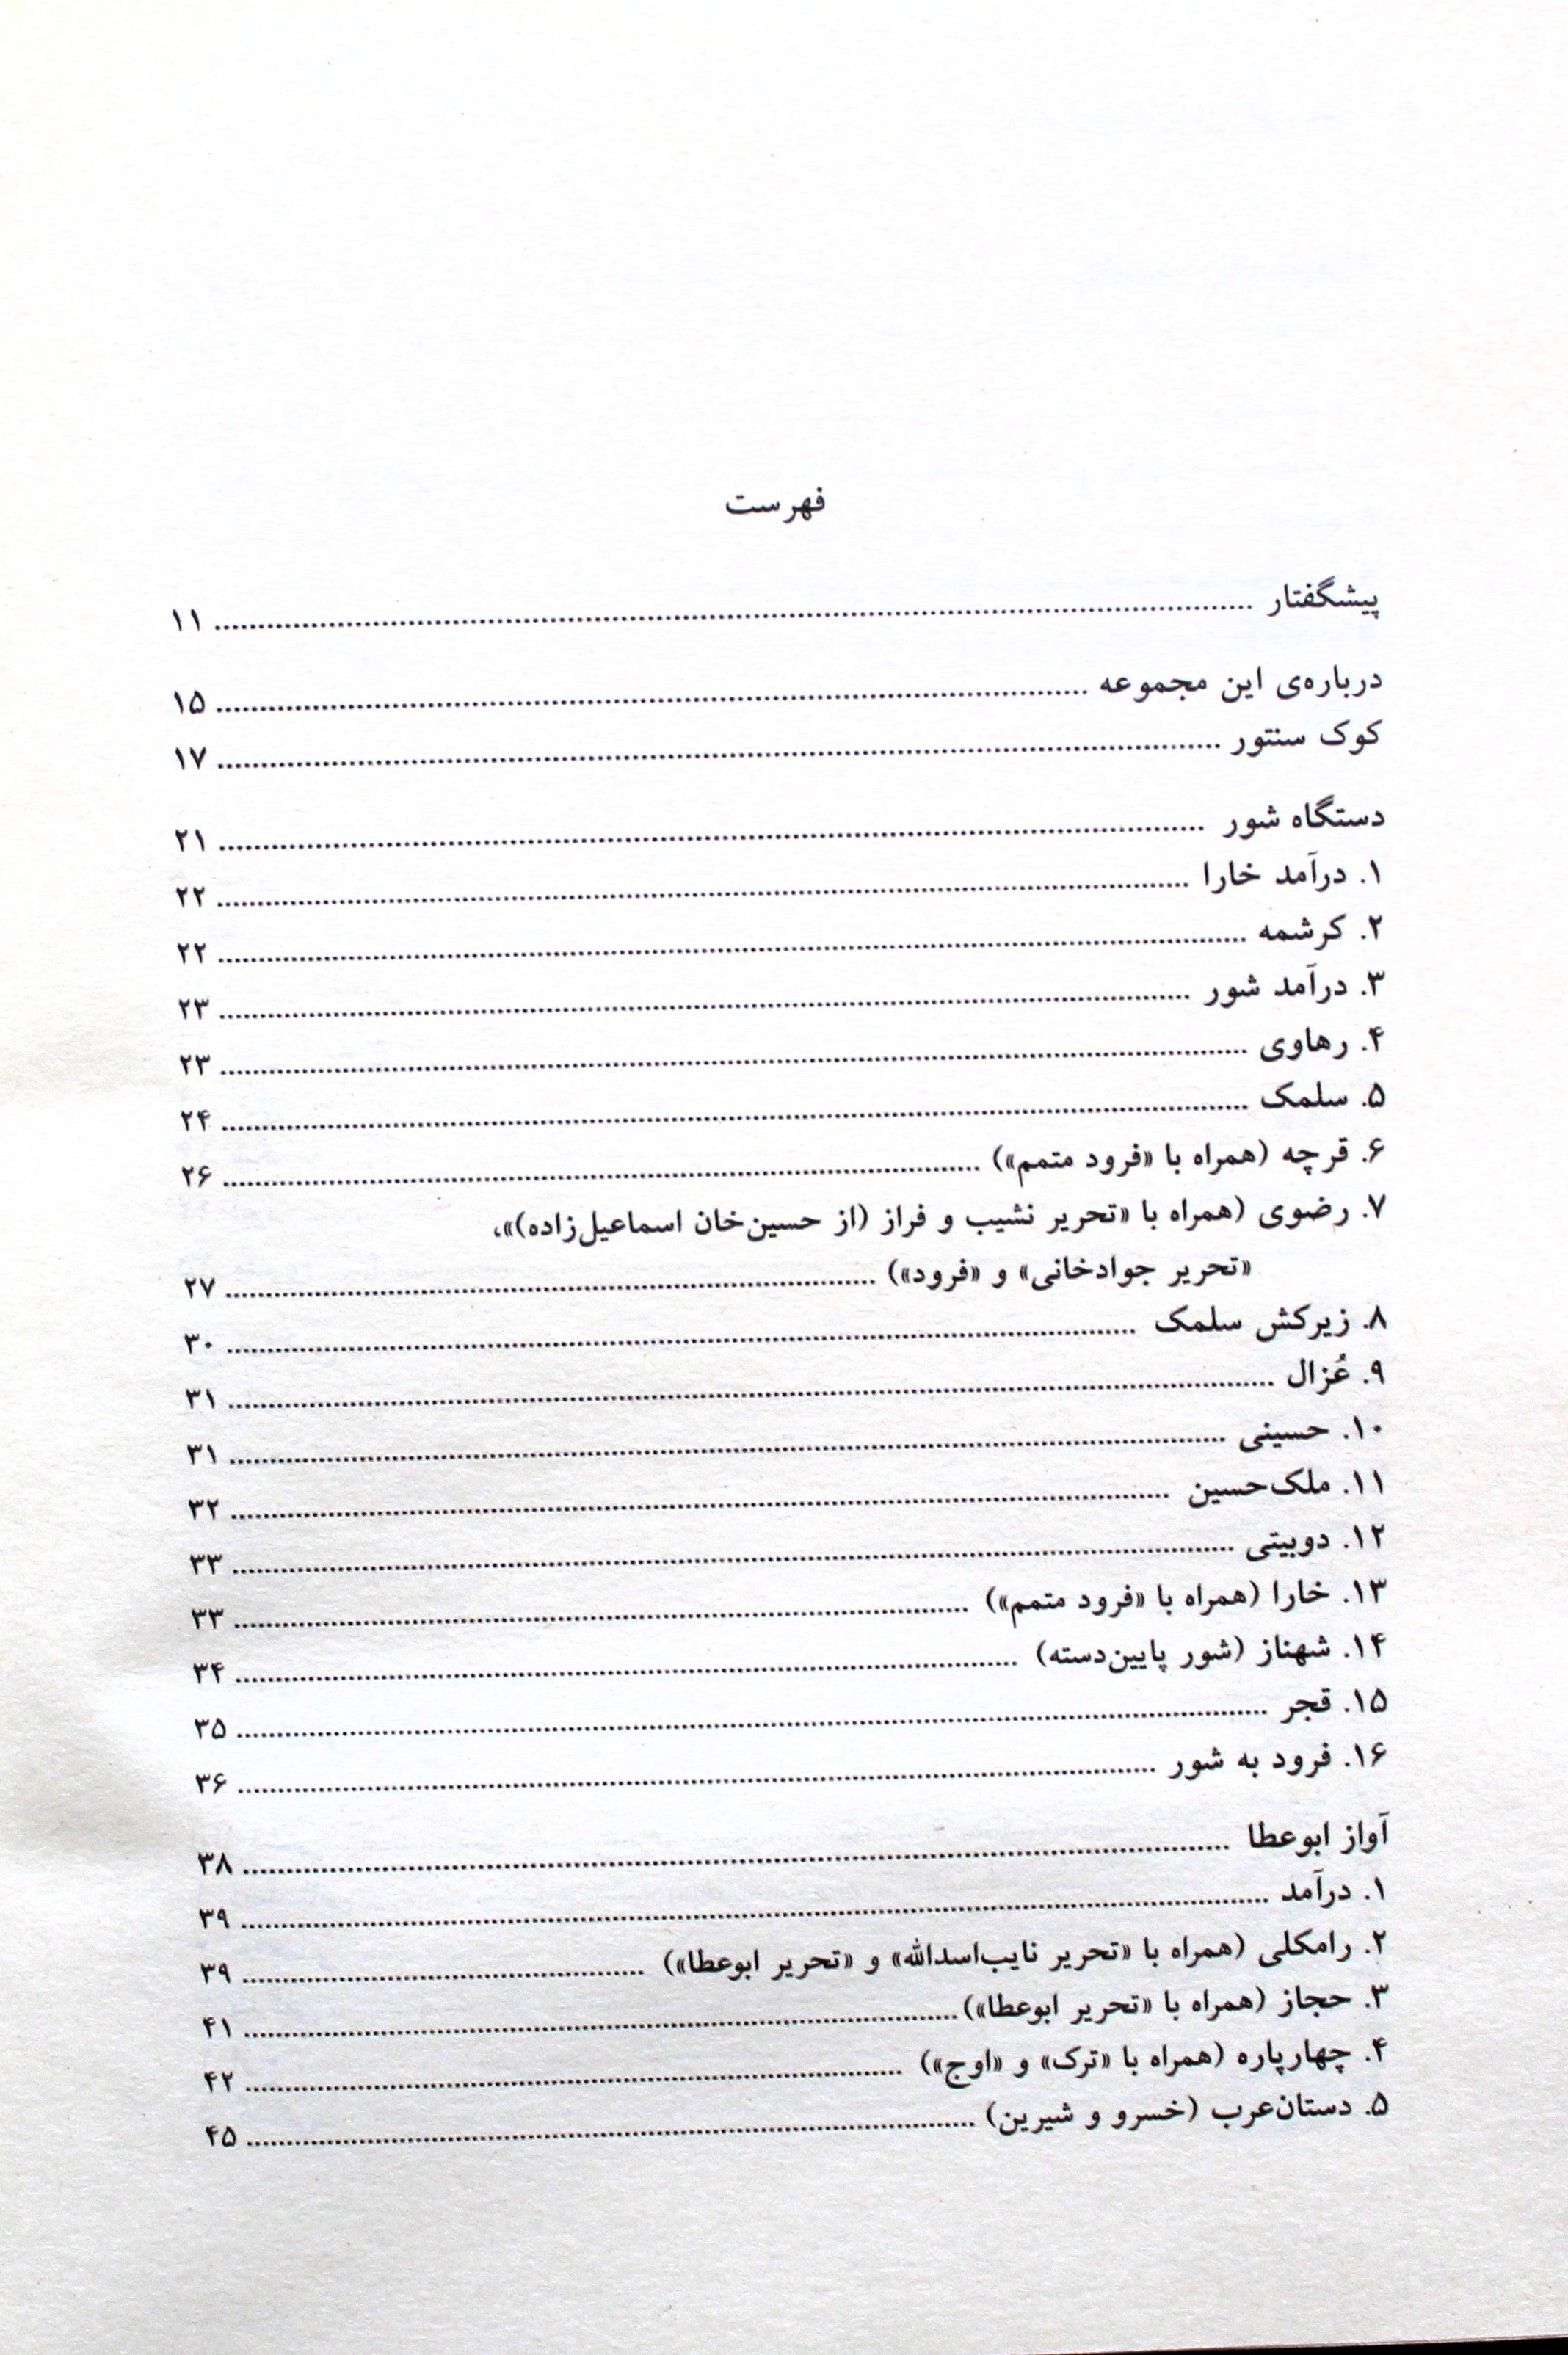 فهرست
پیشگفتار ........ ۱۱
درباره‌ی این مجموعه ........ ۱۵
کوک سنتور ........ ۱۷
دستگاه شور ........ ۲۱
۱. درآمد خارا ........ ۲۲
۲. کرشمه ........ ۲۲
۳. درآمد شور ........ ۲۳
۴. رهاوی ........ ۲۳
۵. سلمک ........ ۲۴
۶. قرچه (همراه با «فرود متمم») ........ ۲۶
۷. رضوی (همراه با «تحریر نشیب و فراز (از حسین‌خان اسماعیل‌زاده)»،
«تحریر جوادخانی» و «فرود») ........ ۲۷
۸. زیرکش سلمک ........ ۳۰
۹. عُزال ........ ۳۱
۱۰. حسینی ........ ۳۱
۱۱. ملک‌حسین ........ ۳۲
۱۲. دوبیتی ........ ۳۳
۱۳. خارا (همراه با «فرود متمم») ........ ۳۳
۱۴. شهناز (شور پایین‌دسته) ........ ۳۴
۱۵. قجر ........ ۳۵
۱۶. فرود به شور ........ ۳۶
آواز ابوعطا ........ ۳۸
۱. درآمد ........ ۳۹
۲. رامکلی (همراه با «تحریر نایب‌اسدالله» و «تحریر ابوعطا») ........ ۳۹
۳. حجاز (همراه با «تحریر ابوعطا») ........ ۴۱
۴. چهارپاره (همراه با «ترک» و «اوج») ........ ۴۲
۵. دستان‌عرب (خسرو و شیرین) ........ ۴۵